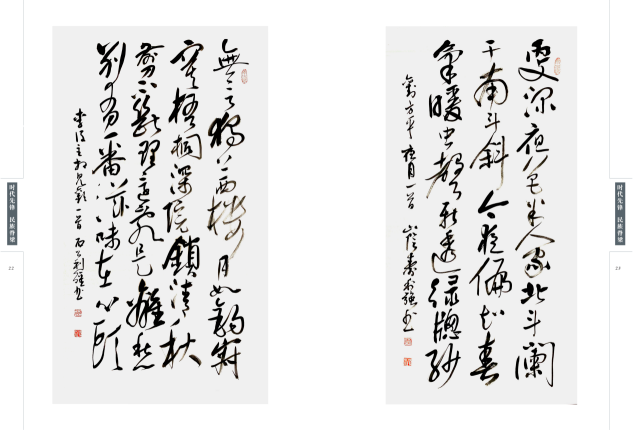 時代先锋 民族脊梁
22
無言獨上西樓月如鈎寂
寞梧桐深院鎖清秋
剪不斷理還亂是離愁
別有一番滋味在心頭
李後主相見歡一首
更深夜色半人家北斗闌
干南斗斜今夜偏知春
氣暖虫聲新透緑窗紗
劉方平夜月一首
时代先锋 民族脊梁
23